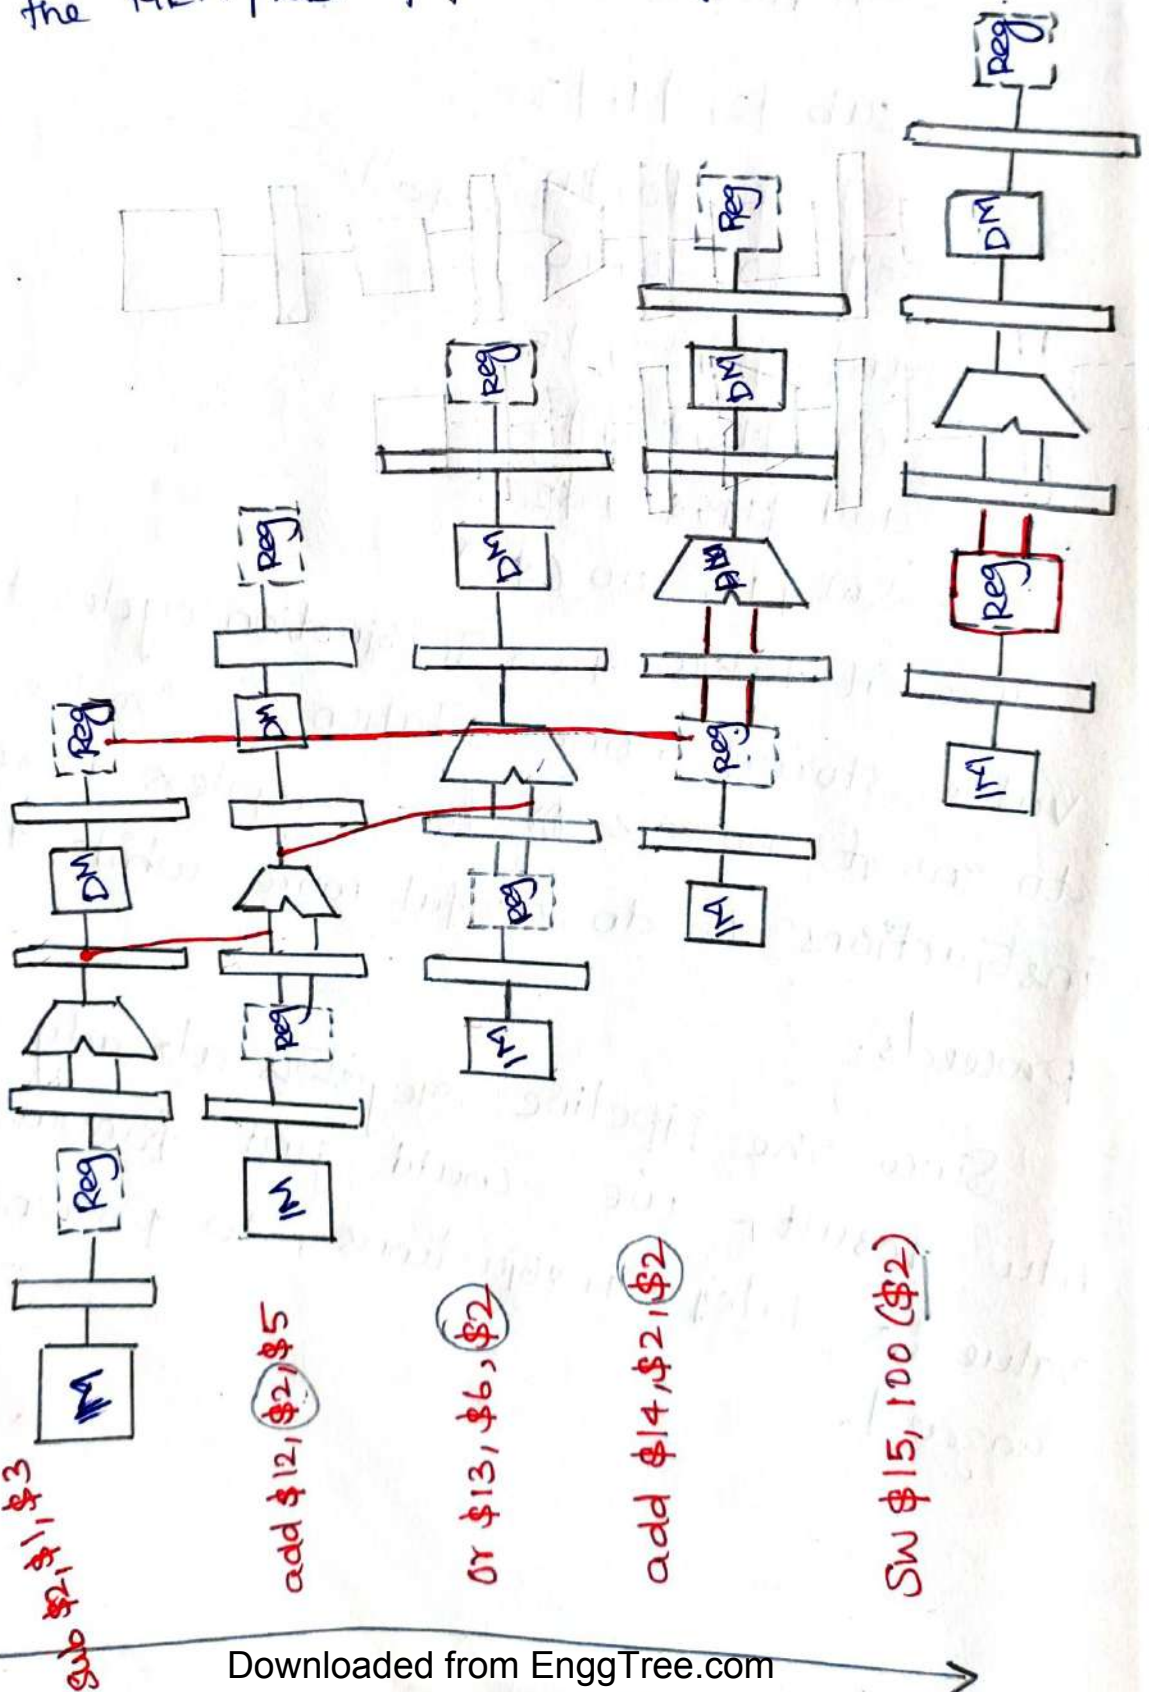 the
sub $2, $1, $3
IM
Reg
DM
Reg
add $12, $2, $5
IM
Reg
DM
Reg
or $13, $6, $2
IM
Reg
DM
Reg
add $14, $2, $2
IM
Reg
DM
Reg
Sw $15, 100 ($2)
IM
Reg
DM
Reg
Downloaded from EnggTree.com